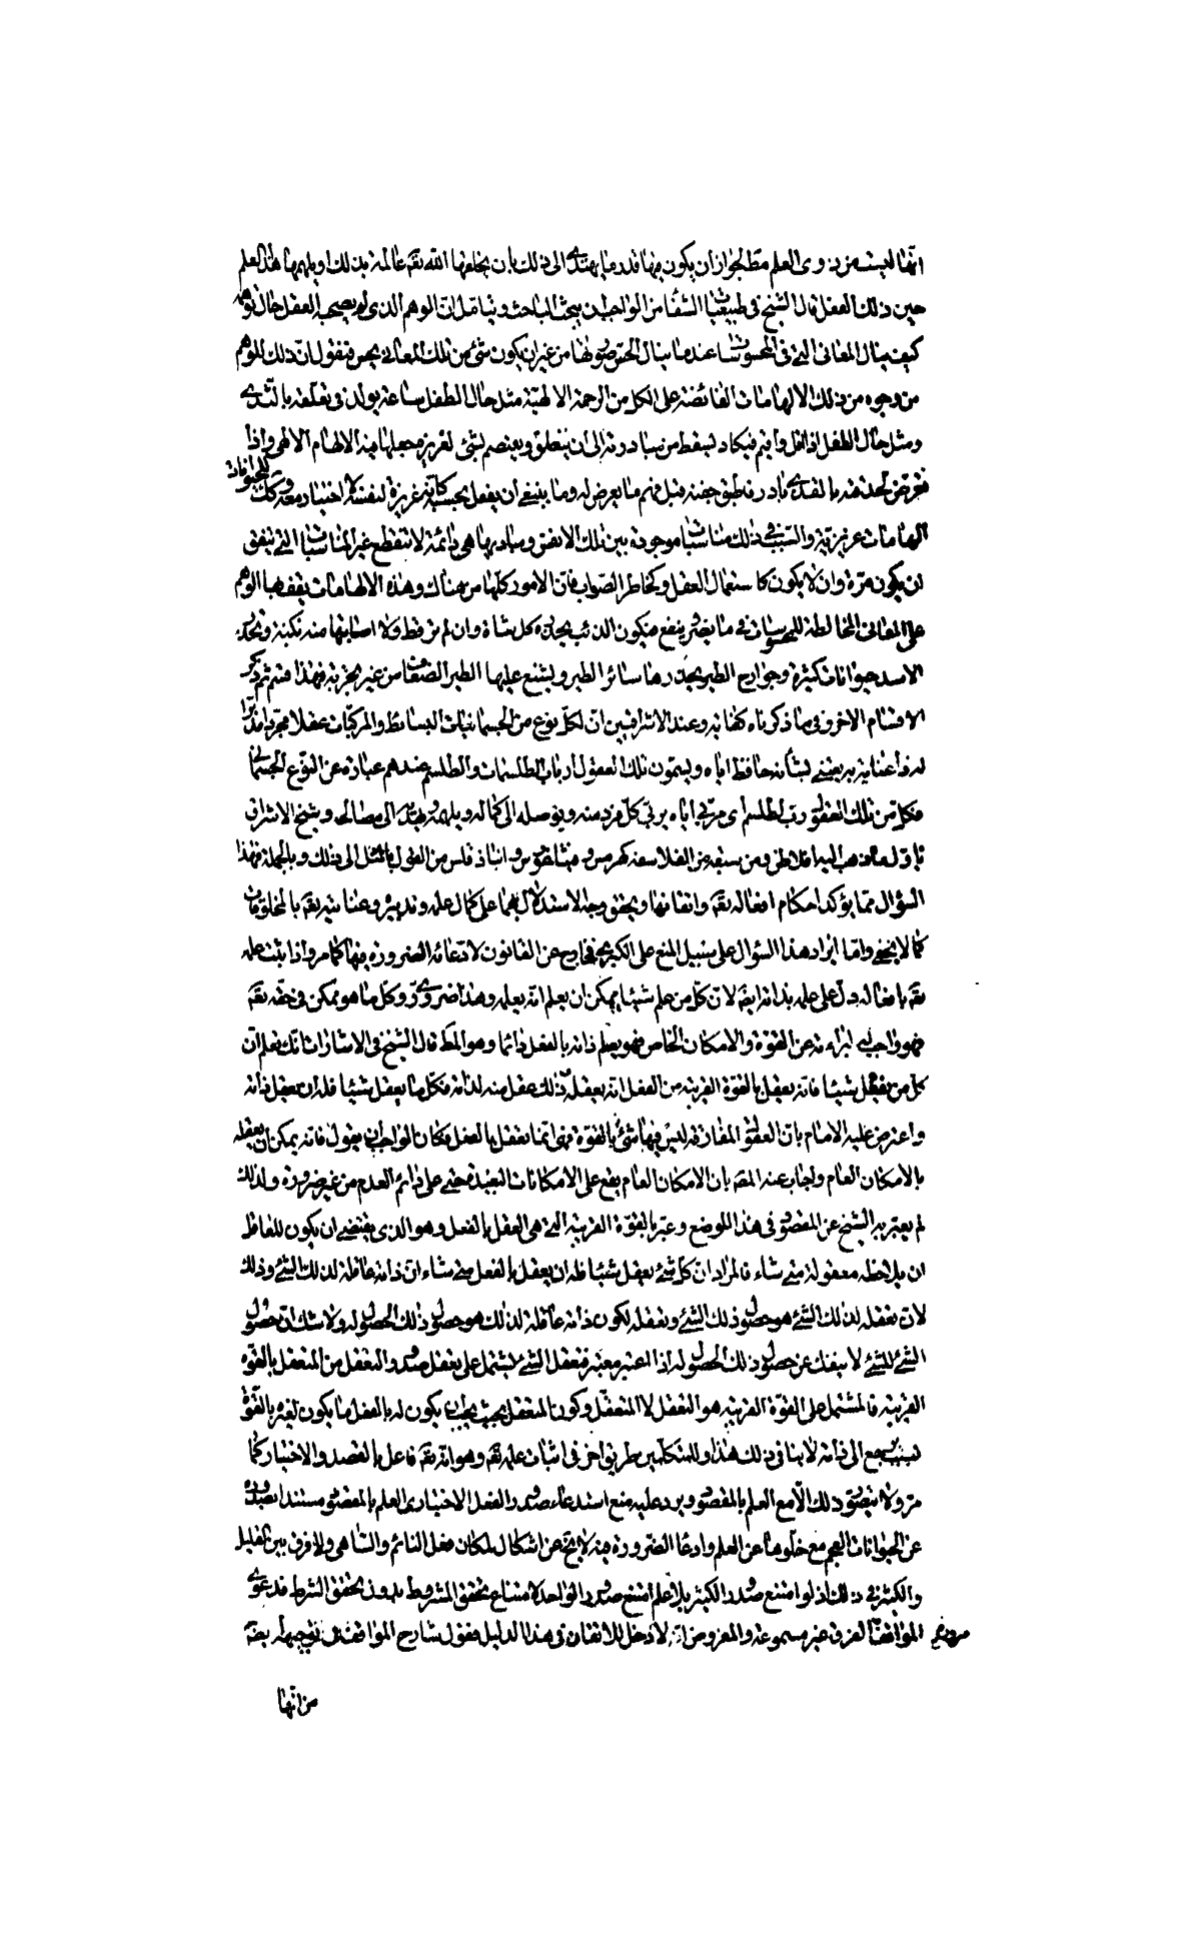 انّها ليست من ذوى العلم مطلقا لجواز ان يكون فيها قدر ما يهتدى الى ذلك بان يخلقها الله تعه عالمة بذلك او يلهمها هذا العلم
حين ذلك الفعل قال الشيخ فى طبيعيّات الشفا من الواجب ان يبحث الباحث ويتامّل انّ الوهم الذى لم يصحبه العقل حال توهّمه
كيف ينال المعانى التى فى المحسوسات عند ما ينال الحسّ صورتها من غير ان يكون شئ من تلك المعانى يحس فنقول انّ ذلك للوهم
من وجوه من ذلك الالهامات الفائضة على الكل من الرحمة الالهيّة مثل حال الطفل ساعة يولد فى تعلّقه بالثدى
ومثل حال الطفل اذا اقلّ واقيم فيكاد يسقط من مبادرته الى ان يتعلّق ويعتصم بشئ لغريزة جعلها فيه الالهام الالهى واذا
تعرّض لحدقته بالقذى بادر فاطبق جفنه قبل فهم ما يعرض له وما ينبغى ان يفعل بحسبه كانّه غريزة لنفسه لا اختيار معه وكك للحيوانات
الهامات غريزيّة والسبب فى ذلك مناسبات موجودة بين تلك الانفس ومباديها هى دائمة لا تنقطع غير المناسبات التى يتفق
ان يكون مرّة وان لا يكون كاستعمال العقل وكخاطر الصواب فانّ الامور كلّها من هناك وهذه الالهامات يقف بها الوهم
على المعانى المخالطة للمحسوسات فى ما يضرّ وينفع فيكون الذئب يحذره كل شاة وان لم تره قط ولا اصابها منه نكبة وتحذر
الاسد حيوانات كثيرة وجوارح الطير يحذرها سائر الطير ويشنع عليها الطير الضعاف من غير تجربة فهذا قسم ثم ذكر
الاقسام الاخر وفى ما ذكرناه كفاية وعند الاشراقيين انّ لكلّ نوع من الجسمانيات البسائط والمركبات عقلا مجردا مدبّرا
له ذا عناية به يعتنى بشأنه حافظا اياه ويسمون تلك العقول ارباب الطلسمات والطلسم عندهم عبارة عن النوع الجسمانى
فكل من تلك العقول رب لطلسم اى مربّى اياه يربّى كلّ فرد منه ويوصله الى كماله ويلهمه ويهديه الى مصالحه وشيخ الاشراق
ياوّل ما ذهب اليه افلاطن ومن سبقه من الفلاسفة كهرمس وفيثاغورس وانباذقلس من القول بالمثل الى ذلك وبالجملة فهذا
السؤال ممّا يؤكد احكام افعاله تعه واتقانها ويحقق وجه الاستدلال بهما على كمال علمه وتدبيره وعنايته تعه بالمخلوقات
كما لا يخفى وامّا ايراد هذا السؤال على سبيل المنع على الكبرى فخارج عن القانون لادعائه الضرورة فيها كما مر واذا ثبت علمه
تعه بافعاله دلّ على علمه بذاته ايضه لانّ كل من علم شيئا يمكن ان يعلم انّه يعلمه وهذا ضرورى وكل ما هو ممكن فى حقه تعه
فهو واجب له لبراءته عن القوّة والامكان الخاص فهو يعلم ذاته بالفعل دائما وهو المط قال الشيخ فى الاشارات انّك تعلم انّ
كل من يعقل شيئا فانّه يعقل بالقوّة القريبة من الفعل انّه يعقله وذلك عقل منه لذاته فكلّ ما يعقل شيئا فله ان يعقل ذاته
واعترض عليه الامام بانّ العقول المفارقة ليس فيها شئ بالقوة فهى انما تعقل بالفعل فكان الواجب ان يقول فانه يمكن ان يعقله
بالامكان العام واجاب عنه المصه بان الامكان العام يقع على الامكانات البعيدة حتى على دائم العدم من غير ضرورة ولذلك
لم يعبّر به الشيخ عن المقصود فى هذا الموضع وعبّر بالقوّة القريبة التى هى العقل بالفعل وهو الذى يقتضى ان يكون للعاقل
ان يلاحظ معقوله متى شاء فالمراد انّ كل شئ يعقل شيئا فله ان يعقل بالفعل متى شاء انّ ذاته عاقلة لذلك الشئ وذلك
لانّ تعقله لذلك الشئ هو حصول ذلك الشئ له وتعقله لكون ذاته عاقلة لذلك هو حصول ذلك الحصول له ولا شك انّ حصول
الشئ للشئ لا ينفك عن حصول ذلك الحصول له اذا اعتبر معتبر فتعقل الشئ يشتمل على تعقل صدور التعقل من المتعقل بالقوّة
القريبة فالمشتمل على القوّة القريبة هو التعقل لا المتعقّل وكون المتعقل بحيث يجب ان يكون له بالفعل ما يكون لغيره بالقوّة
لسبب يرجع الى ذاته لا ينافى ذلك هذا وللمتكلمين طريق اخر فى اثبات علمه تعه وهو انّه تعه فاعل بالقصد والاختيار كما
مرّ ولا يتصوّر ذلك الّا مع العلم بالمقصود ويرد عليه منع استدعاء صدور الفعل الاختيارى العلم بالمقصود مستندا بصدوره
عن الحيوانات العجم مع خلّوها عن العلم وادعاء الضرورة فيه لا يخ عن اشكال لمكان فعل النائم والساهى والفرق بين القليل
والكثير فى ذلك اذ لو امتنع صدور الكثير بلا علم امتنع صدور الواحد لامتناع تحقق المشروط بدون تحقق الشرط فدعوى
المواقف الفرق غير مسموعة والمعروض انّه لا دخل للاتقان فى هذا الدليل فقول شارح المواقف فى توجيهه بعه
من انّها